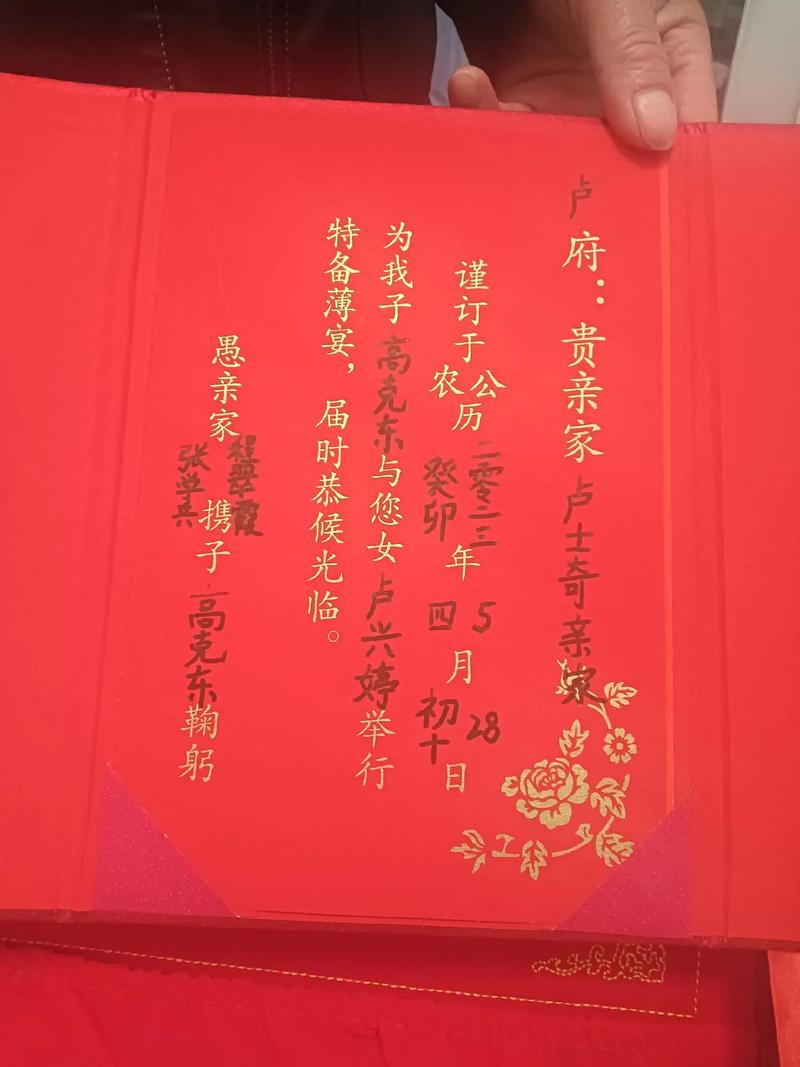 卢府：贵亲家卢士奇亲家
谨订于公农历二零二三癸卯年5四月28初十日
为我子高克东与您女卢兴婷举行
特备薄宴，届时恭候光临。
愚亲家程翠霞张学兵携子高克东鞠躬